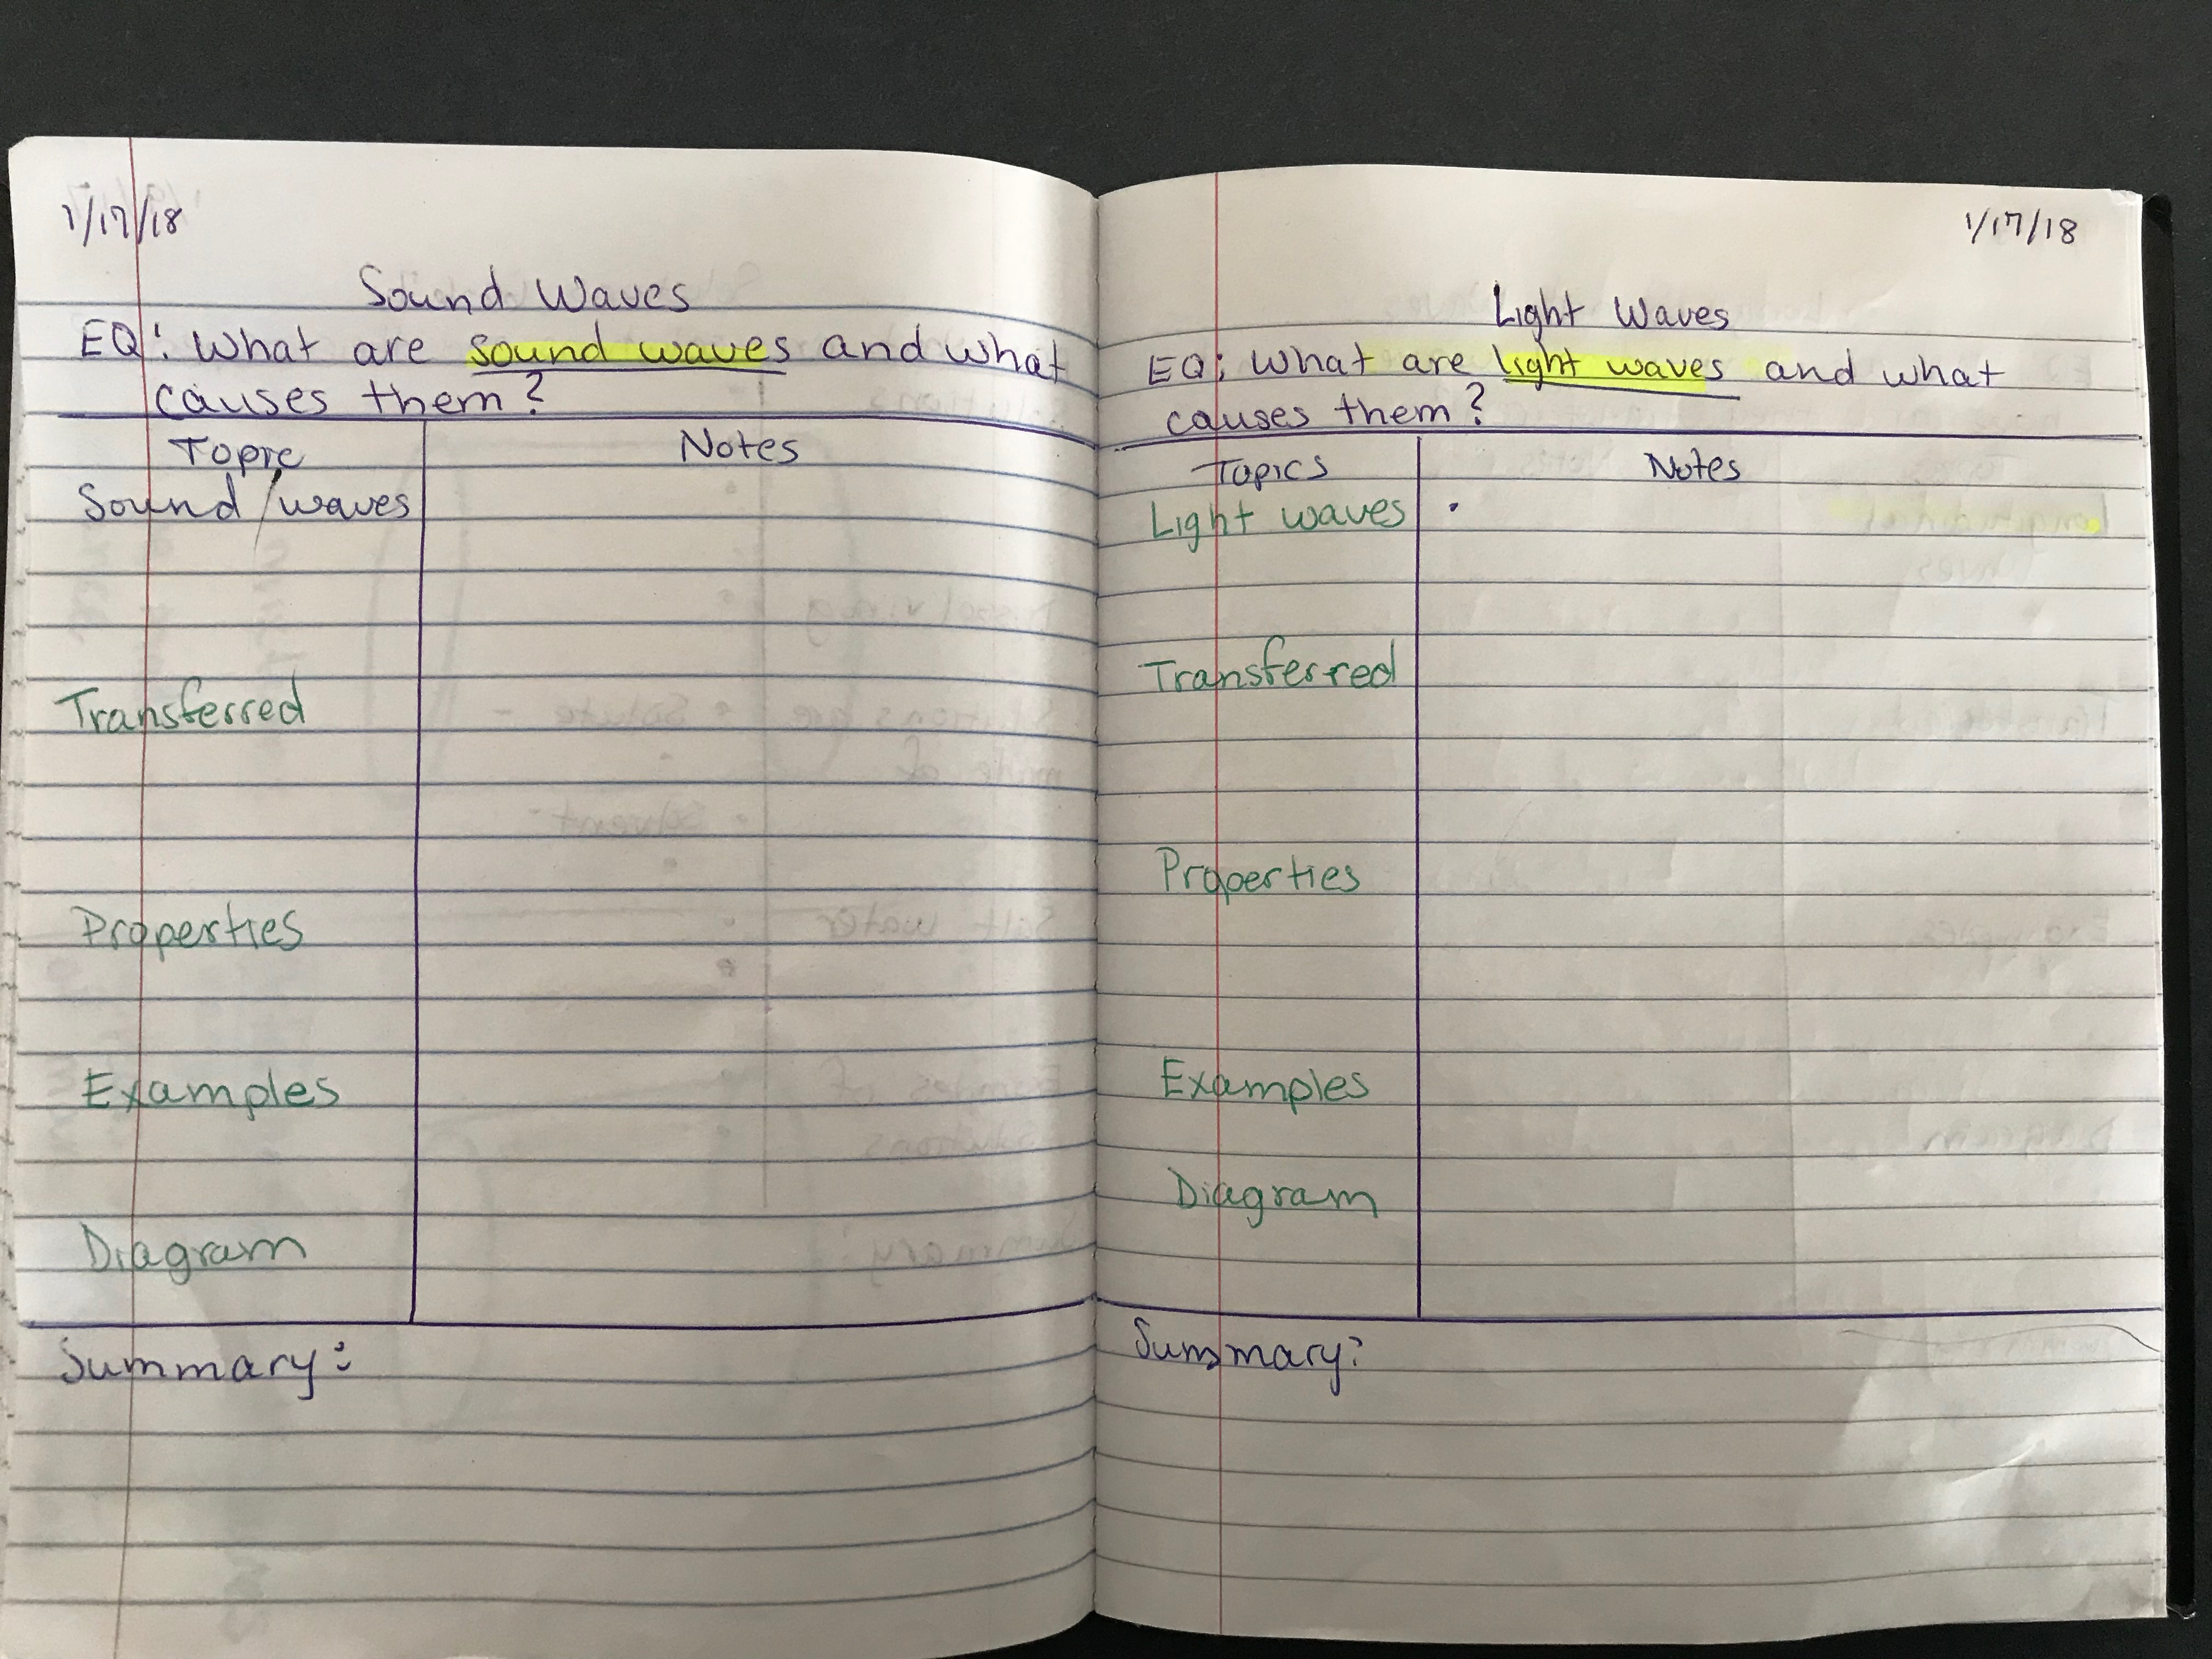 1/17/18
Sound Waves
EQ: What are sound waves and what
causes them?
Topic
Notes
Sound waves
Transferred
Properties
Examples
Diagram
Summary:
1/17/18
Light Waves
EQ: What are light waves and what
causes them?
Topics
Notes
Light waves
•
Transferred
Properties
Examples
Diagram
Summary: